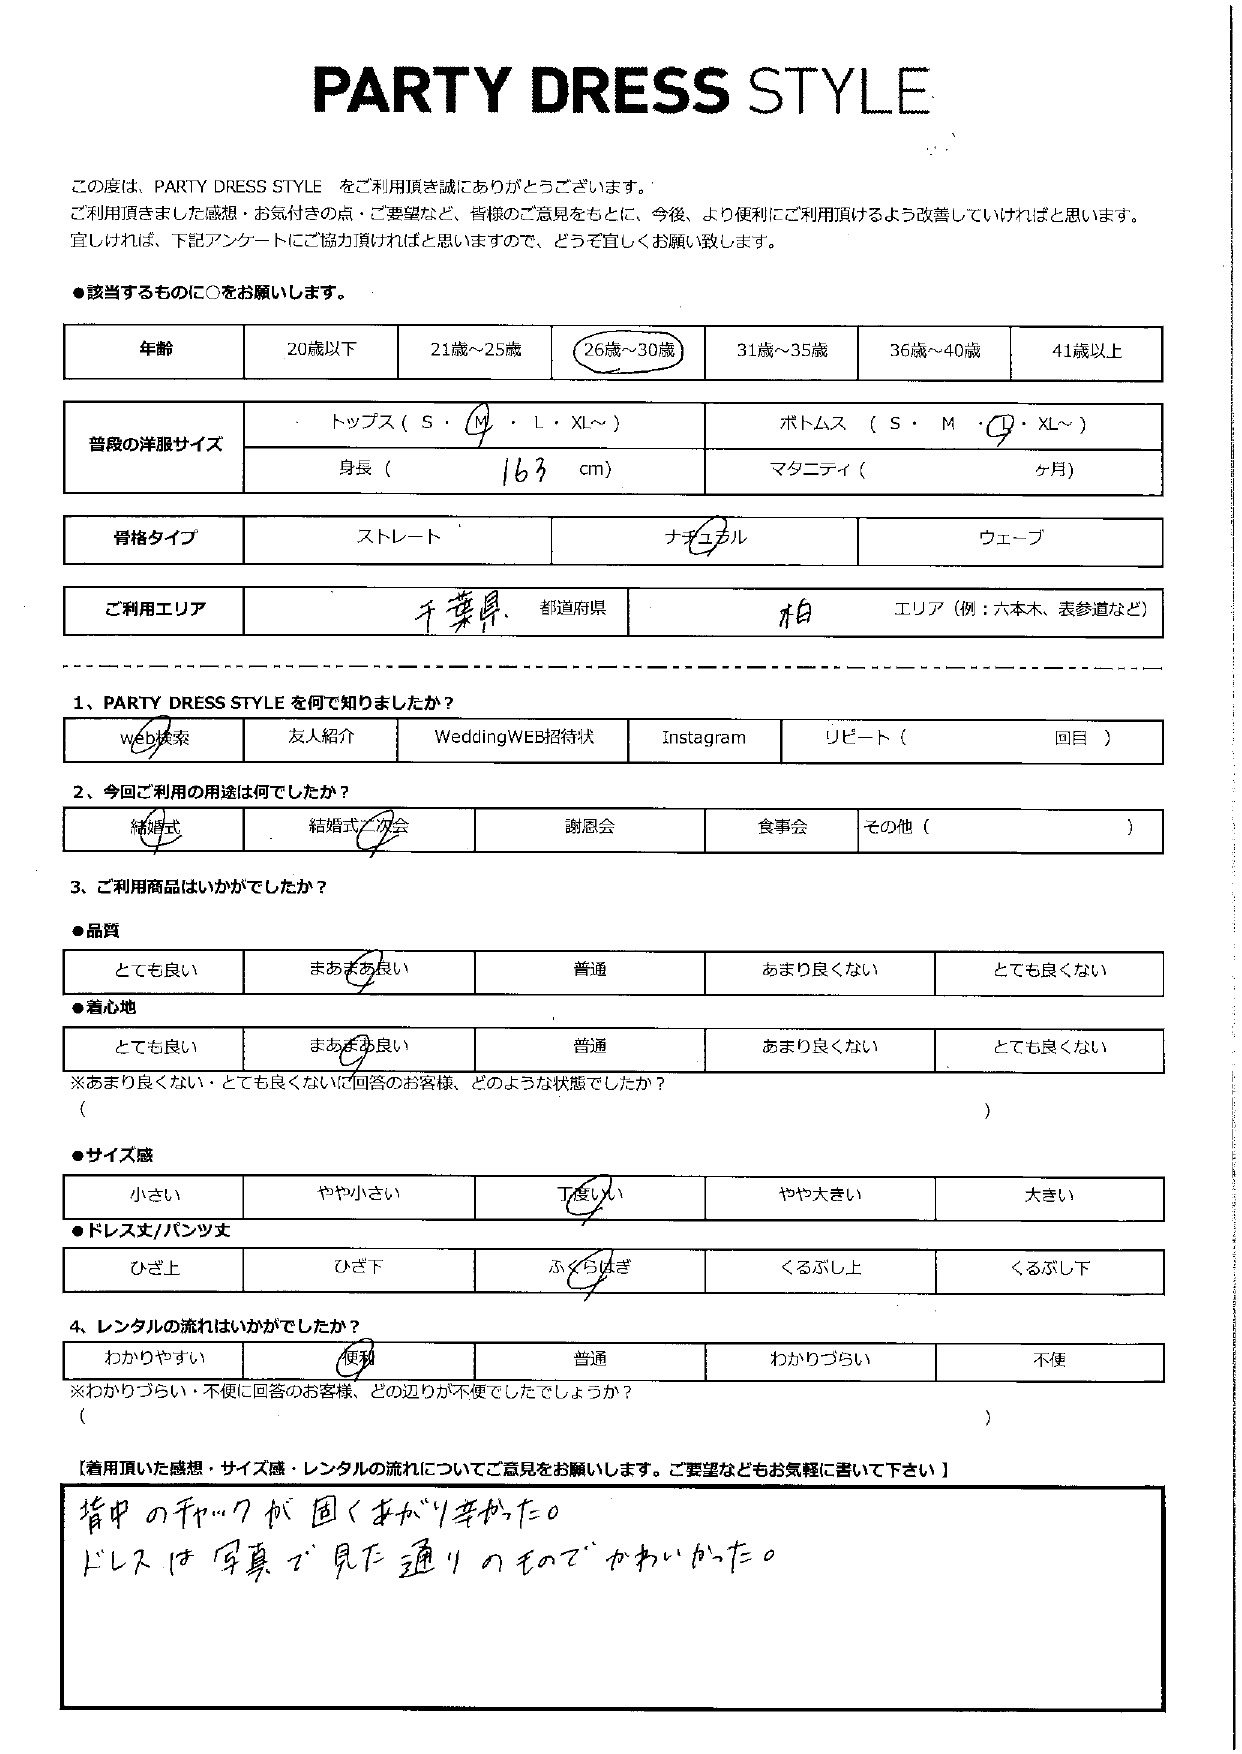 PARTY DRESS STYLE
この度は、PARTY DRESS STYLE をご利用頂き誠にありがとうございます。
ご利用頂きました感想・お気付きの点・ご要望など、皆様のご意見をもとに、今後、より便利にご利用頂けるよう改善していければと思います。
宜しければ、下記アンケートにご協力頂ければと思いますので、どうぞ宜しくお願い致します。
●該当するものに○をお願いします。
年齢 20歳以下 21歳～25歳 26歳～30歳 31歳～35歳 36歳～40歳 41歳以上
普段の洋服サイズ トップス ( S ・ M ・ L ・ XL～ ) ボトムス ( S ・ M ・ L ・ XL～ )
身長 ( 163 cm) マタニティ ( ヶ月)
骨格タイプ ストレート ナチュラル ウェーブ
ご利用エリア 千葉県. 都道府県 柏 エリア（例：六本木、表参道など）
1、PARTY DRESS STYLE を何で知りましたか？
web検索 友人紹介 WeddingWEB招待状 Instagram リピート ( 回目 )
2、今回ご利用の用途は何でしたか？
結婚式 結婚式二次会 謝恩会 食事会 その他 ( )
3、ご利用商品はいかがでしたか？
●品質
とても良い まあまあ良い 普通 あまり良くない とても良くない
●着心地
とても良い まあまあ良い 普通 あまり良くない とても良くない
※あまり良くない・とても良くないに回答のお客様、どのような状態でしたか？
( )
●サイズ感
小さい やや小さい 丁度いい やや大きい 大きい
●ドレス丈/パンツ丈
ひざ上 ひざ下 ふくらはぎ くるぶし上 くるぶし下
4、レンタルの流れはいかがでしたか？
わかりやすい 便利 普通 わかりづらい 不便
※わかりづらい・不便に回答のお客様、どの辺りが不便でしたでしょうか？
( )
【着用頂いた感想・サイズ感・レンタルの流れについてご意見をお願いします。ご要望などもお気軽に書いて下さい 】
背中のチャックが固くあがり辛かった。
ドレスは写真で見た通りのものでかわいかった。